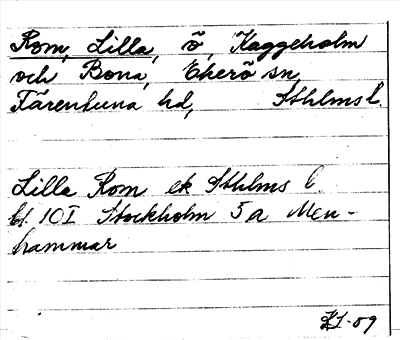 Rom, Lilla, ö, Kaggeholm
och Bona, Ekerö sn,
Färentuna hd, Sthlms l.
Lilla Rom ek Sthlms l.
bl 10 I Stockholm 5 a Men-
hammar
-59